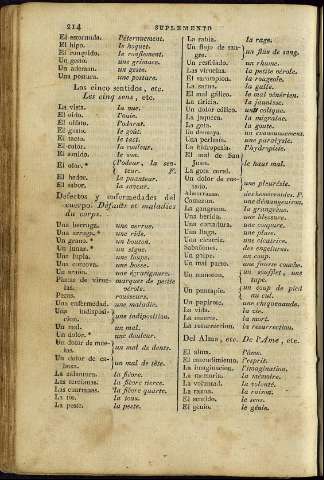 214 SUPLEMENTO
El estornudo. l'éternument.
El hipo. le hoquet.
El ronquido. le ronflement.
Un gesto. une grimace.
Un ademan. un geste.
Una postura. une posture.
Los cinco sentidos, etc.
Les cinq sens, etc.
La vista. la vue.
El oido. l'ouïe.
El olfato. l'odorat.
El gusto. le goût.
El tacto. le tact.
El color. la couleur.
El sonido. le son.
El olor. * l'odeur, la senteur. F.
El hedor. la puanteur.
El sabor. la saveur.
Defectos y enfermedades del
cuerpo. Défauts et maladies
du corps.
Una berruga. une verrue.
Una arruga. * une ride.
Un grano. * un bouton.
Un lunar. * un signe.
Una lupia. une loupe.
Una corcova. une bosse.
Un araño. une égratignure.
Pecas. rousseurs.
Una enfermedad. une maladie.
Una indisposicion. une indisposition.
Un mal. un mal.
Un dolor. * une douleur.
Un dolor de muelas. un mal de dents.
Un dolor de cabeza. un mal de tête.
La calentura. la fièvre.
Las tercianas. la fièvre tierce.
Las cuartanas. la fièvre quarte.
La tos. la toux.
La peste. la peste.
La rabia. la rage.
Un flujo de sangre. un flux de sang.
Un resfriado. un rhume.
Las viruelas. la petite vérole.
El sarampion. la rougeole.
La sarna. la galle.
El mal gálico. le mal vénérien.
La tiricia. la jaunisse.
Un dolor cólico. une colique.
La jaqueca. la migraine.
La gota. la goutte.
Un desmayo. un évanouissement.
Una perlesía. une paralysie.
La hidropesía. l'hydropisie.
El mal de San Juan. le haut mal.
La gota coral.
Un dolor de costado. une pleurésie.
Almorranas. des hémorroïdes. F.
Comezon. une démangeaison.
La gangrena. la gangrène.
Una herida. une blessure.
Una cortadura. une coupure.
Una llaga. une plaie.
Una cicatriz. une cicatrice.
Sabañones. des engelures.
Un golpe. un coup.
Un mal parto. une fausse couche.
un soufflet, une tape.
un coup de pied au cul.
Un papirote. une chiquenaude.
La vida. la vie.
La muerte. la mort.
La resurreccion. la resurrection.
Del Alma, etc. De l'Ame, etc.
El alma. l'âme.
El entendimiento. l'esprit.
La imaginacion. l'imagination.
La memoria. la mémoire.
La voluntad. la volonté.
La razon. la raison.
El sentido. le sens.
El genio. le génie.